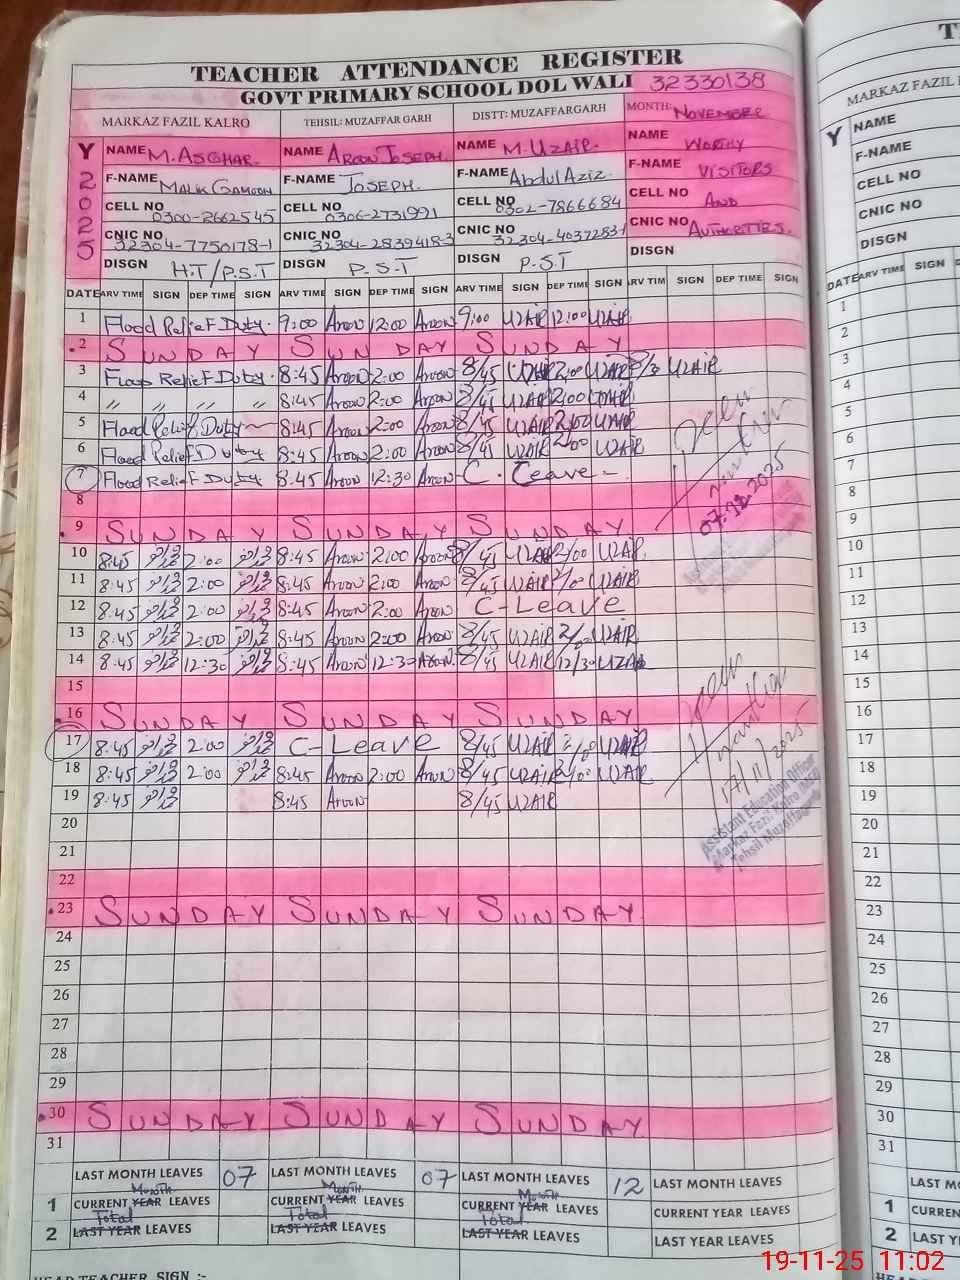 TEACHER ATTENDANCE REGISTER
GOVT PRIMARY SCHOOL DOL WALI 32330138
MARKAZ FAZIL KALRO TEHSIL: MUZAFFAR GARH DISTT: MUZAFFARGARH MONTH: NOVEMBER
Y 2025
NAME M. ASGHAR. NAME AROON JOSEPH. NAME M. UZAIR. NAME WORTHY
F-NAME MALIK F-NAME JOSEPH. F-NAME Abdul Aziz. F-NAME VISITORS
CELL NO 0300-2662545 CELL NO 0306-2731991 CELL NO 0302-7866684 CELL NO AND
CNIC NO 32304-7750178-1 CNIC NO 32304-2839418-3 CNIC NO 32304-4037283-1 CNIC NO AUTHORITIES.
DISGN H.T/P.S.T DISGN P.S.T DISGN P.S.T DISGN
DATE ARV TIME SIGN DEP TIME SIGN ARV TIME SIGN DEP TIME SIGN ARV TIME SIGN DEP TIME SIGN ARV TIME SIGN DEP TIME SIGN
1 Flood Relief Duty. 9:00 Aroon 12:00 Aroon 9:00 UZAIR 12:00 UZAIR
2 SUNDAY SUNDAY SUNDAY
3 Flood Relief Duty. 8:45 Aroon 2:00 Aroon 8/45 UZAIR 2:00 UZAIR UZAIR
4 〃 〃 〃 〃 8:45 Aroon 2:00 Aroon 8/45 UZAIR 2:00 UZAIR
5 Flood Relief Duty 8:45 Aroon 2:00 Aroon 8/45 UZAIR 2:00 UZAIR
6 Flood Relief Duty 8:45 Aroon 2:00 Aroon 8/45 UZAIR 2:00 UZAIR
7 Flood Relief Duty 8:45 Aroon 12:30 Aroon C. Leave -
8
9 SUNDAY SUNDAY SUNDAY
10 8:45 2:00 8:45 Aroon 2:00 Aroon 8/45 UZAIR 2/00 UZAIR
11 8:45 2:00 8:45 Aroon 2:00 Aroon 8/45 UZAIR 2/00 UZAIR
12 8:45 2:00 8:45 Aroon 2:00 Aroon C-Leave
13 8:45 2:00 8:45 Aroon 2:00 Aroon 8/45 UZAIR 2/00 UZAIR
14 8:45 12:30 8:45 Aroon 12:30 Aroon 8/45 UZAIR 12/30 UZAIR
15
16 SUNDAY SUNDAY SUNDAY
17 8:45 2:00 C-Leave 8/45 UZAIR 2/00 UZAIR
18 8:45 2:00 8:45 Aroon 2:00 Aroon 8/45 UZAIR 2/00 UZAIR
19 8:45 8:45 Aroon 8/45 UZAIR
20
21
22
23 SUNDAY SUNDAY SUNDAY
24
25
26
27
28
29
30 SUNDAY SUNDAY SUNDAY
31
17/11/2025
Assistant Education Officer
Markaz Fazil Kalro
Tehsil Muzaffargarh
LAST MONTH LEAVES 07 LAST MONTH LEAVES 07 LAST MONTH LEAVES 12 LAST MONTH LEAVES
Month Month Month
1 CURRENT YEAR LEAVES CURRENT YEAR LEAVES CURRENT YEAR LEAVES CURRENT YEAR LEAVES
Total Total Total
2 LAST YEAR LEAVES LAST YEAR LEAVES LAST YEAR LEAVES LAST YEAR LEAVES
HEAD TEACHER SIGN :-
MARKAZ FAZIL
Y NAME
F-NAME
CELL NO
CNIC NO
DISGN
DATE ARV TIME SIGN
1
2
3
4
5
6
7
8
9
10
11
12
13
14
15
16
17
18
19
20
21
22
23
24
25
26
27
28
29
30
31
LAST
1 CURREN
2 LAST Y
19-11-25 11:02